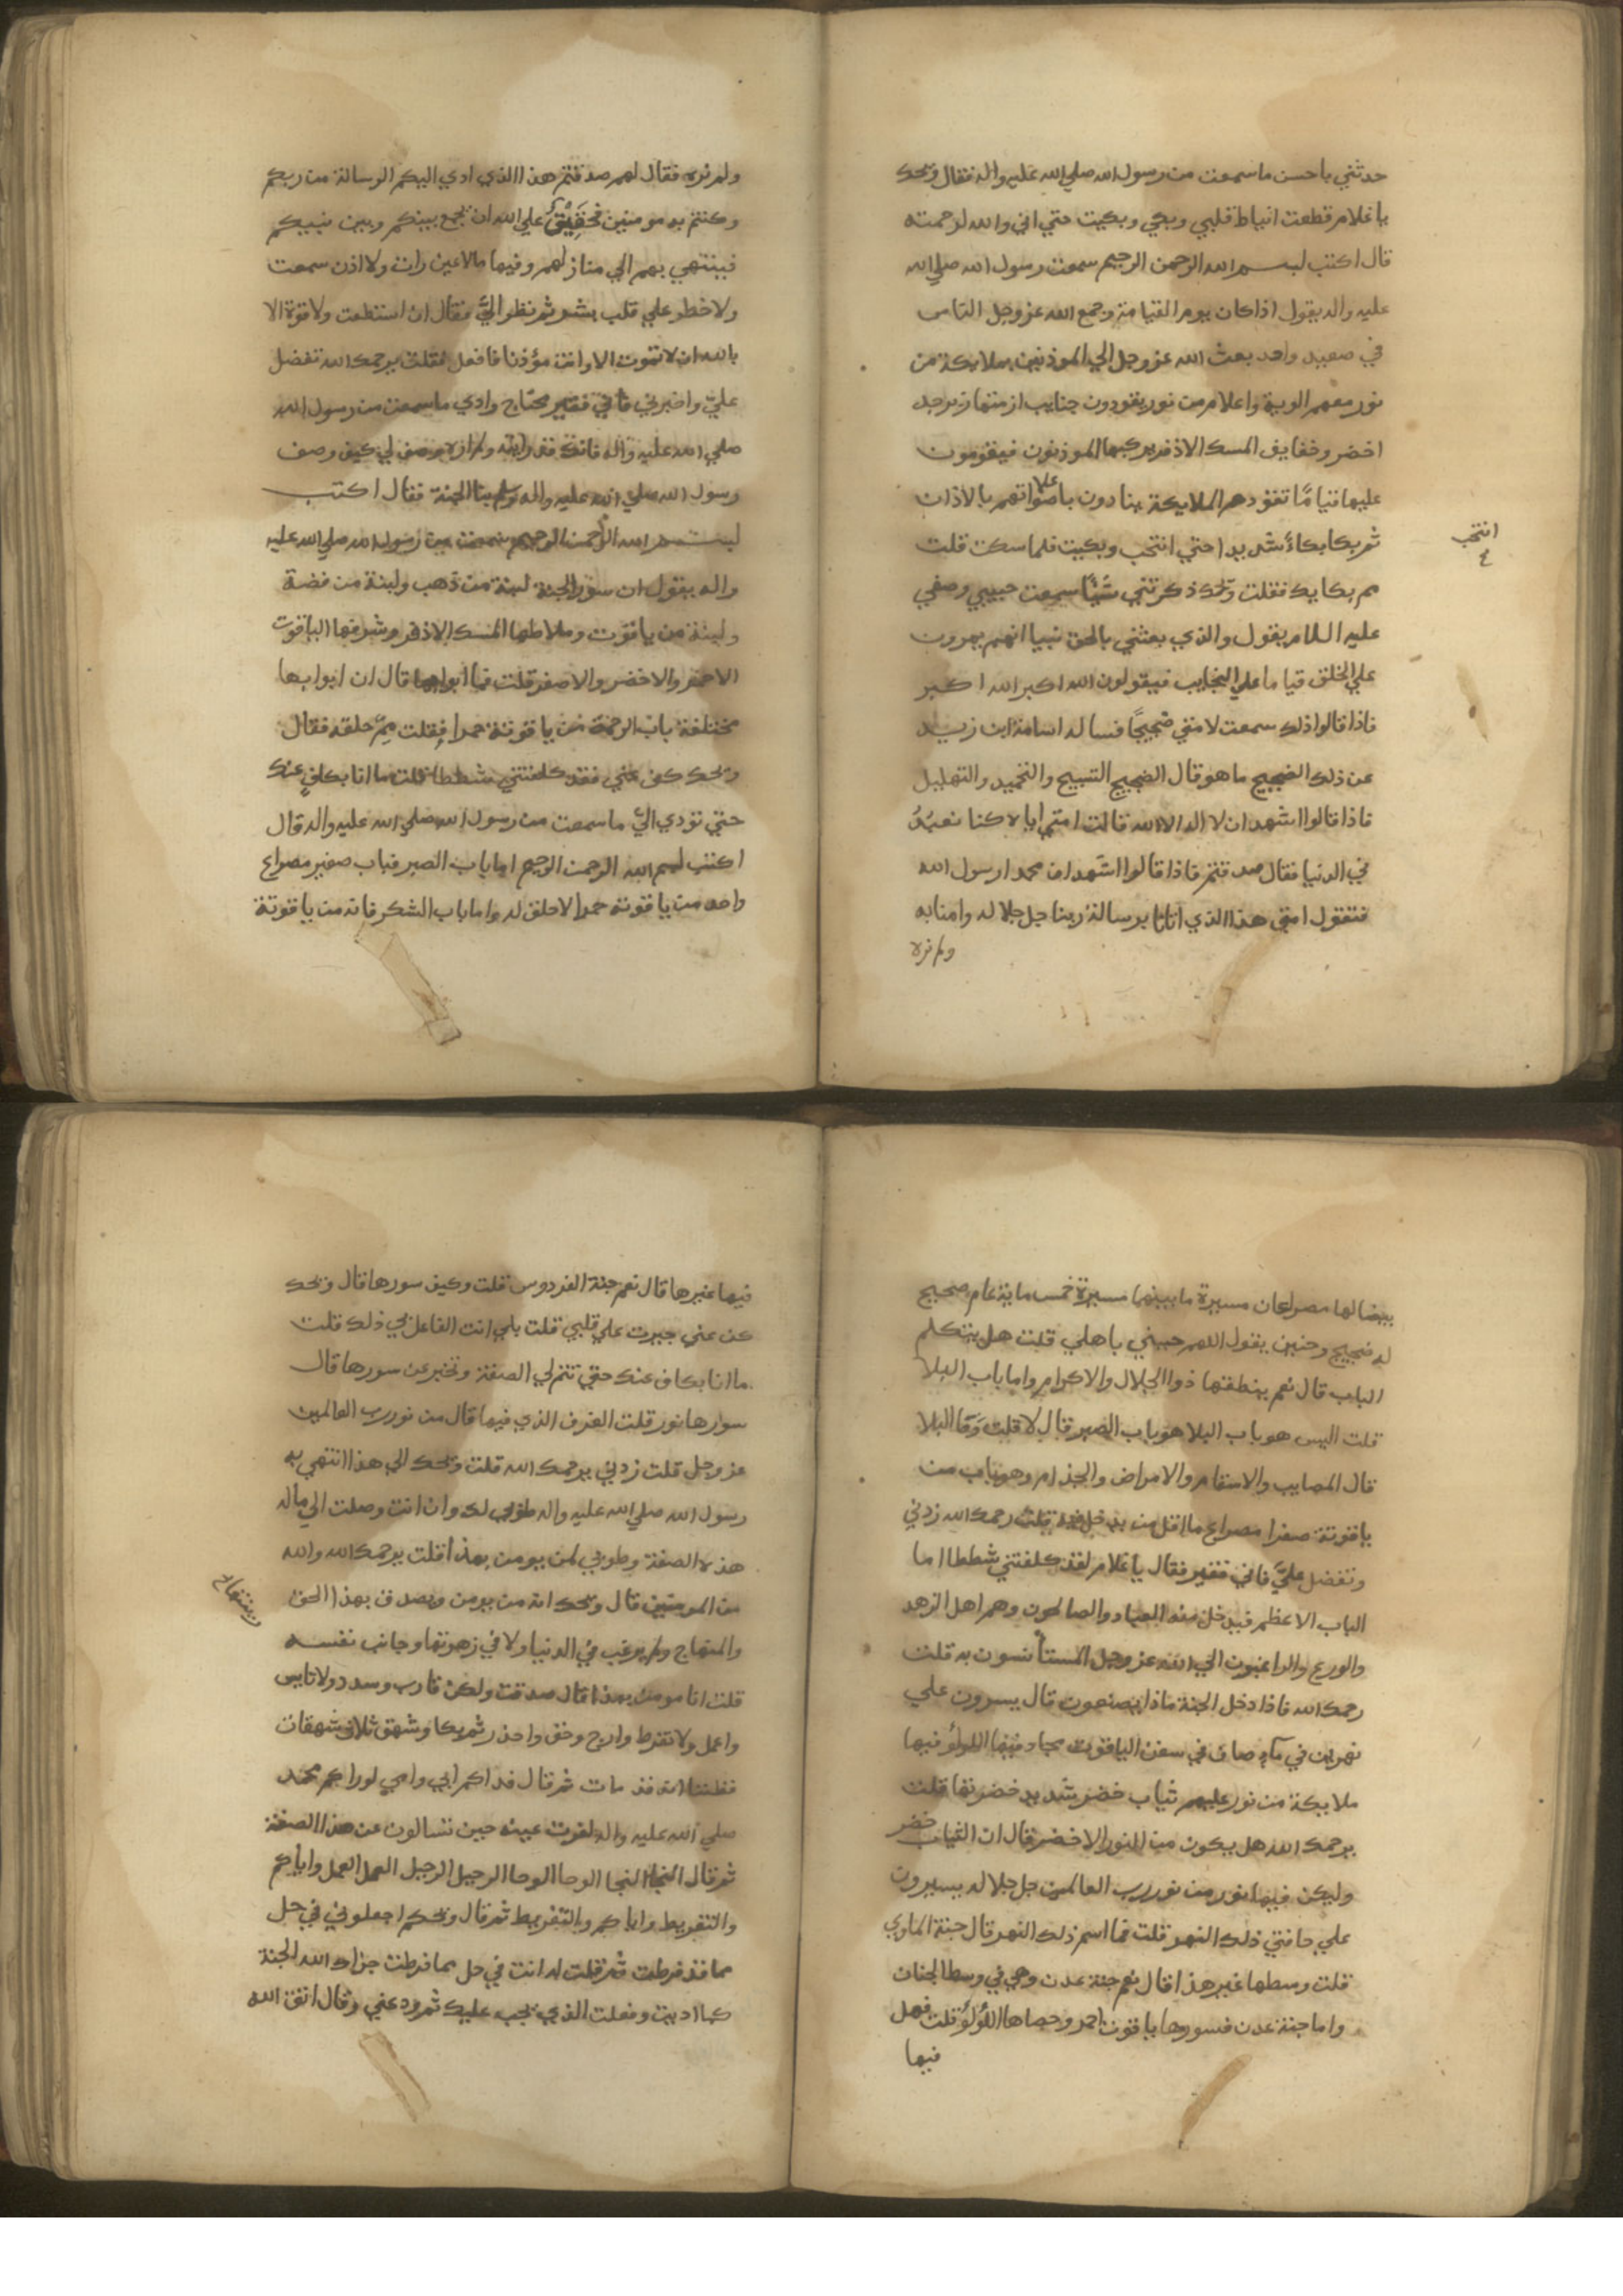 حدثني باحسن ماسمعت من رسول الله صلي الله عليه واله فقال ويحك
يا غلام قطعت انياط قلبي وبكي وبكيت حتي اني والله لرحمته
قال اكتب لبسم الله الرحمن الرحيم سمعت رسول الله صلي الله
عليه واله يقول اذا كان يوم القيامة وجمع الله عز وجل الناس
في صعيد واحد بعث الله عز وجل الي الموذنين بملايكة من
نور معهم الوية واعلام من نور يقودون جنايب ازمتها زبرجد
اخضر وخفايف المسك الاذفر يركبها الموذنون فيقومون
عليها قيامًا تقودهم الملايكة ينادون باعلا صواتهم بالاذان
ثم بكا بكاءً شديدا حتي انتحب وبكيت فلما سكت قلت
انتحب
٤
مم بكايك فقلت ويحك ذكرتني شيًا سمعت حبيبي وصفي
عليه السلام يقول والذي بعثني بالحق نبيا انهم يمرون
علي الخلق قياما علي النجايب فيقولون الله اكبر الله اكبر
فاذا قالوا ذلك سمعت لامتي ضجيجًا فساله اسامة ابن زيد
عن ذلك الضجيج ما هو قال الضجيج التسبيح والتحميد والتهليل
فاذا قالوا اشهد ان لا اله الا الله قالت امتي اياه كنا نعبُدُ
في الدنيا فقال صدقتم فاذا قالوا اشهد ان محمدا رسول الله
فتقول امتي هذا الذي اتانا برسالة ربنا جل جلاله وامنا به
ولم نره
ولم نره فقال لهم صدقتم هذا الذي ادي اليكم الرسالة من ربكم
وكنتم به مومنين فحقيقٌ علي الله ان يجمع بينكم وبين نبيكم
فينتهي بهم الي منازلهم وفيها مالا عين رات ولا اذن سمعت
ولا خطر علي قلب بشر ثم نظر اليَّ فقال ان استطعت ولا قوة الا
بالله ان لا تموت الا وانت مؤذنا فافعل فقلت يرحمك الله تفضل
عليّ واخبرني فاني فقير محتاج وادي ماسمعت من رسول الله
صلي الله عليه واله فانك قد رايته ولم اره وصف لي كيف وصف
رسول الله صلي الله عليه واله وسلم بنا الجنة فقال اكتب
لبسم الله الرحمن الرحيم سمعت من رسول الله صلي الله عليه
واله يقول ان سور الجنة لبنة من ذهب ولبنة من فضة
ولبنة من ياقوت وملاطها المسك الاذفر وشرفها الياقوت
الاحمر والاخضر والاصفر قلت فما ابوابها قال ان ابوابها
مختلفة باب الرحمة من ياقوتة حمرا فقلت ممّ حلقه فقال
ويحك كف عني فقد كلفتني شططا قلت ما انا بكافٍ عنك
حتي تودي اليّ ماسمعت من رسول الله صلي الله عليه واله قال
اكتب لبسم الله الرحمن الرحيم اما باب الصبر فباب صغير مصراع
واحد من ياقوتة حمرا لاحلق له واما باب الشكر فانه من ياقوتة
بيضا لها مصراعان مسيرة ما بينهما مسيرة خمس ماية عام صحيح
له ضجيج وحنين يقول اللهم حببني باهلي قلت هل يتكلم
الباب قال نعم ينطقها ذوا الجلال والاكرام واما باب البلا
قلت اليس هو باب البلا هو باب الصبر قال لا قلت وَمَا البلا
قال المصايب والاسقام والامراض والجذام وهو باب من
ياقوتة صفرا مصراع ما اقل من يدخل منه قلت رحمك الله زدني
وتفضل عليَّ فاني فقير فقال يا غلام لقد كلفتني شططا اما
الباب الاعظم فيدخل منه العباد والصالحون وهم اهل الزهد
والورع والراغبون الي الله عز وجل المستأنسون به قلت
رحمك الله فاذا دخل الجنة ماذا يصنعون قال يسرون علي
نهرين في مآءٍ صاف في سفن الياقوت مجاد فيها اللولؤ فيها
ملايكة من نور عليهم ثياب خضر شديد خضرتها قلت
يرحمك الله هل يكون من النور الاخضر قال ان الثياب خضر
ولكن فيها نور من نور رب العالمين جل جلاله يسيرون
علي حافتي ذلك النهر قلت فما اسم ذلك النهر قال جنة الماوي
قلت وسطها غير هذا قال نعم جنة عدن وهي في وسط الجنان
واما جنة عدن فسورها ياقوت احمر وحصاها اللولؤ قلت فهل
فيها
فيها غيرها قال نعم جنة الفردوس قلت وكيف سورها قال ويحك
كف عني جبرت علي قلبي قلت بلي انت الفاعل بي ذلك قلت
ما انا بكاف عنك حتي تتم لي الصفة وتخبر عن سورها قال
سورها نور قلت الغرف الذي فيها قال من نور رب العالمين
عز وجل قلت زدني يرحمك الله قلت ويحك الي هذا انتهي به
رسول الله صلي الله عليه واله طوبي لك وان انت وصلت الي ماله
هذه الصفة وطوبي لمن يومن بهذا قلت يرحمك الله والله
من المومنين قال ويحك انه من يومن ويصدق بهذا الحق
والمنهاج ولم يرغب في الدنيا ولا في زهرتها وحاسب نفسه
قلت انا مومن بهذا قال صدقت ولكن قارب وسدد ولا تايس
واعمل ولا تفرط وارج وخف واحذر ثم بكا وشهق ثلاث شهقات
فظننا انه قد مات ثم قال فداكم ابي وامي لو راكم محمد
صلي الله عليه واله لقرت عينه حين تسالون عن هذا الصفة
ثم قال النجا النجا الوحا الوحا الرحيل الرحيل العمل العمل واياكم
والتفريط واياكم والتفريط ثم قال ويحكم اجعلوني في حل
مما قد فرطت ثم قلت له انت في حل مما فرطت جزاك الله الجنة
كما اديت وفعلت الذي يجب عليك ثم ودعني وقال اتق الله